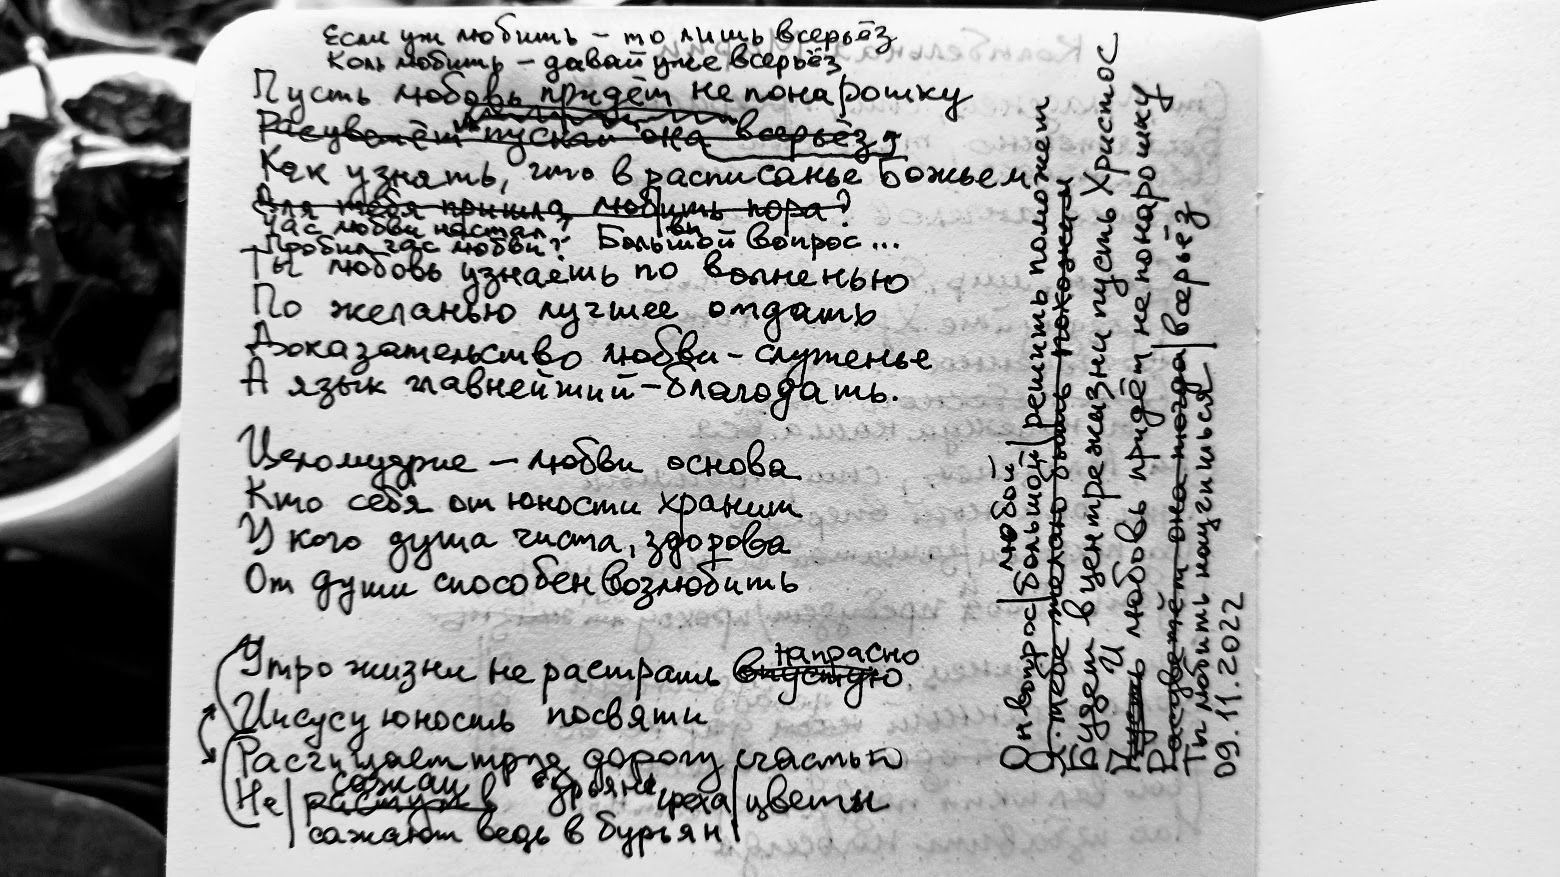 Если уж любить – то лишь всерьёз
Коль любить – давай уже всерьёз
Пусть любовь придёт не понарошку
Расцветёт пускай она всерьёз,
Как узнать, что в расписанье Божьем
Для тебя пришла любить пора?
Час любви настал?
Пробил час любви? Большой вопрос...
Ты любовь узнаешь по волненью
По желанью лучшее отдать
Доказательство любви – служенье
А язык главнейший – благодать.
Целомудрие – любви основа
Кто себя от юности хранит
У кого душа чиста, здорова
От души способен возлюбить
Утро жизни не растрать впустую напрасно
Иисусу юность посвяти
Расчищает труд дорогу счастью
Не растут в бурьяне греха цветы
сажай
сажают ведь в бурьян
любой
Он вопрос большой решить поможет
Будет в центре жизни пусть Христос
Пусть И любовь придёт не понарошку
Расцветёт она тогда всерьёз
Ты любить научишься
09.11.2022